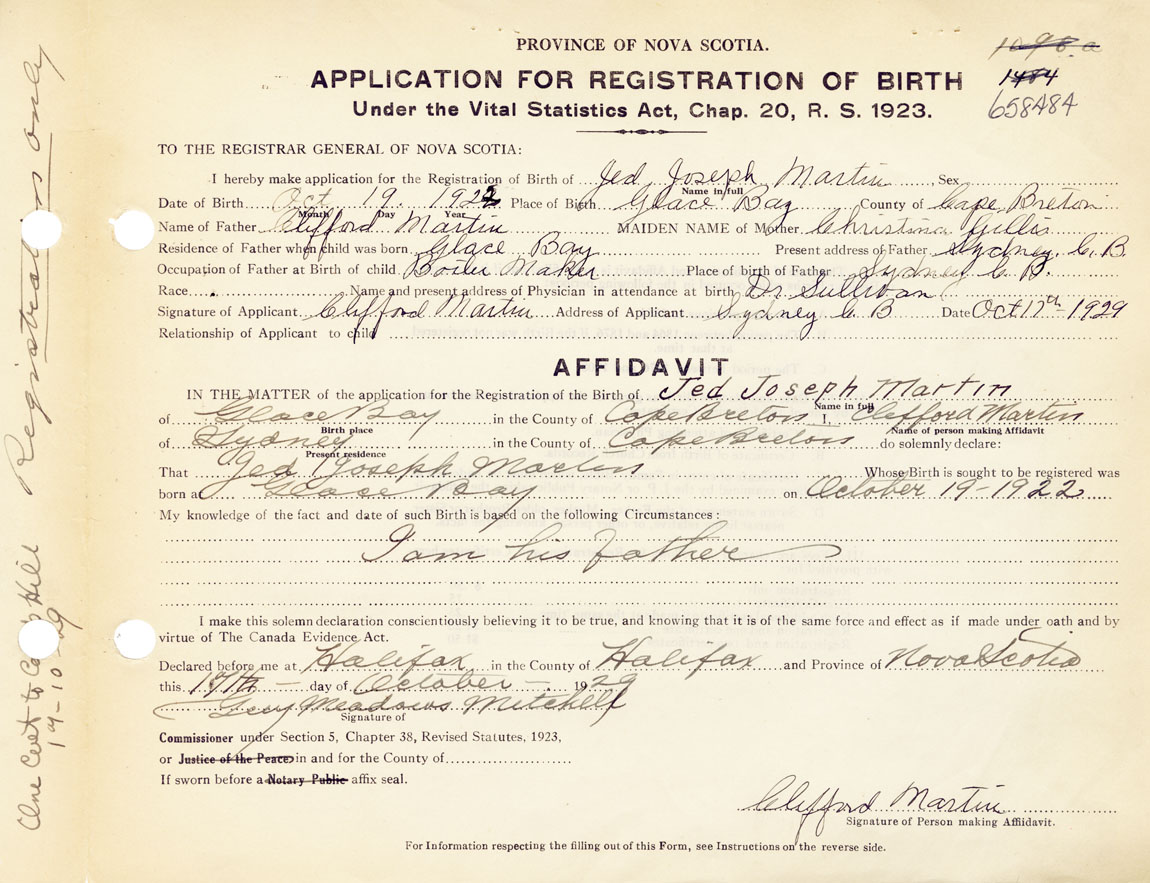 PROVINCE OF NOVA SCOTIA.
1098 a
APPLICATION FOR REGISTRATION OF BIRTH
1484
Under the Vital Statistics Act, Chap. 20, R. S. 1923.
658484
TO THE REGISTRAR GENERAL OF NOVA SCOTIA:
I hereby make application for the Registration of Birth of Jed Joseph Martin, Sex
Name in full
Date of Birth Oct 19. 1922 Place of Birth Glace Bay County of Cape Breton
Month Day Year
Name of Father Clifford Martin MAIDEN NAME of Mother Christina Gillis
Residence of Father when child was born Glace Bay Present address of Father Sydney C. B.
Occupation of Father at Birth of child Boiler Maker Place of birth of Father Sydney C. B.
Race Name and present address of Physician in attendance at birth Dr Sullivan
Signature of Applicant Clifford Martin Address of Applicant Sydney C B Date Oct 17th 1929
Relationship of Applicant to child
AFFIDAVIT
IN THE MATTER of the application for the Registration of the Birth of Jed Joseph Martin
Name in full
of Glace Bay in the County of Cape Breton I, Clifford Martin
Birth place Name of person making Affidavit
of Sydney in the County of Cape Breton do solemnly declare:
Present residence
That Jed Joseph Martin Whose Birth is sought to be registered was
born at Glace Bay on October 19-1922
My knowledge of the fact and date of such Birth is based on the following Circumstances:
I am his father
I make this solemn declaration conscientiously believing it to be true, and knowing that it is of the same force and effect as if made under oath and by
virtue of The Canada Evidence Act.
Declared before me at Halifax in the County of Halifax and Province of Nova Scotia
this 17th day of October 1929
Meadows Mitchell
Signature of
Commissioner under Section 5, Chapter 38, Revised Statutes, 1923,
or Justice of the Peace in and for the County of
If sworn before a Notary Public affix seal.
Clifford Martin
Signature of Person making Affidavit.
For Information respecting the filling out of this Form, see Instructions on the reverse side.
Registration only
Cert to Hill
19-10-29